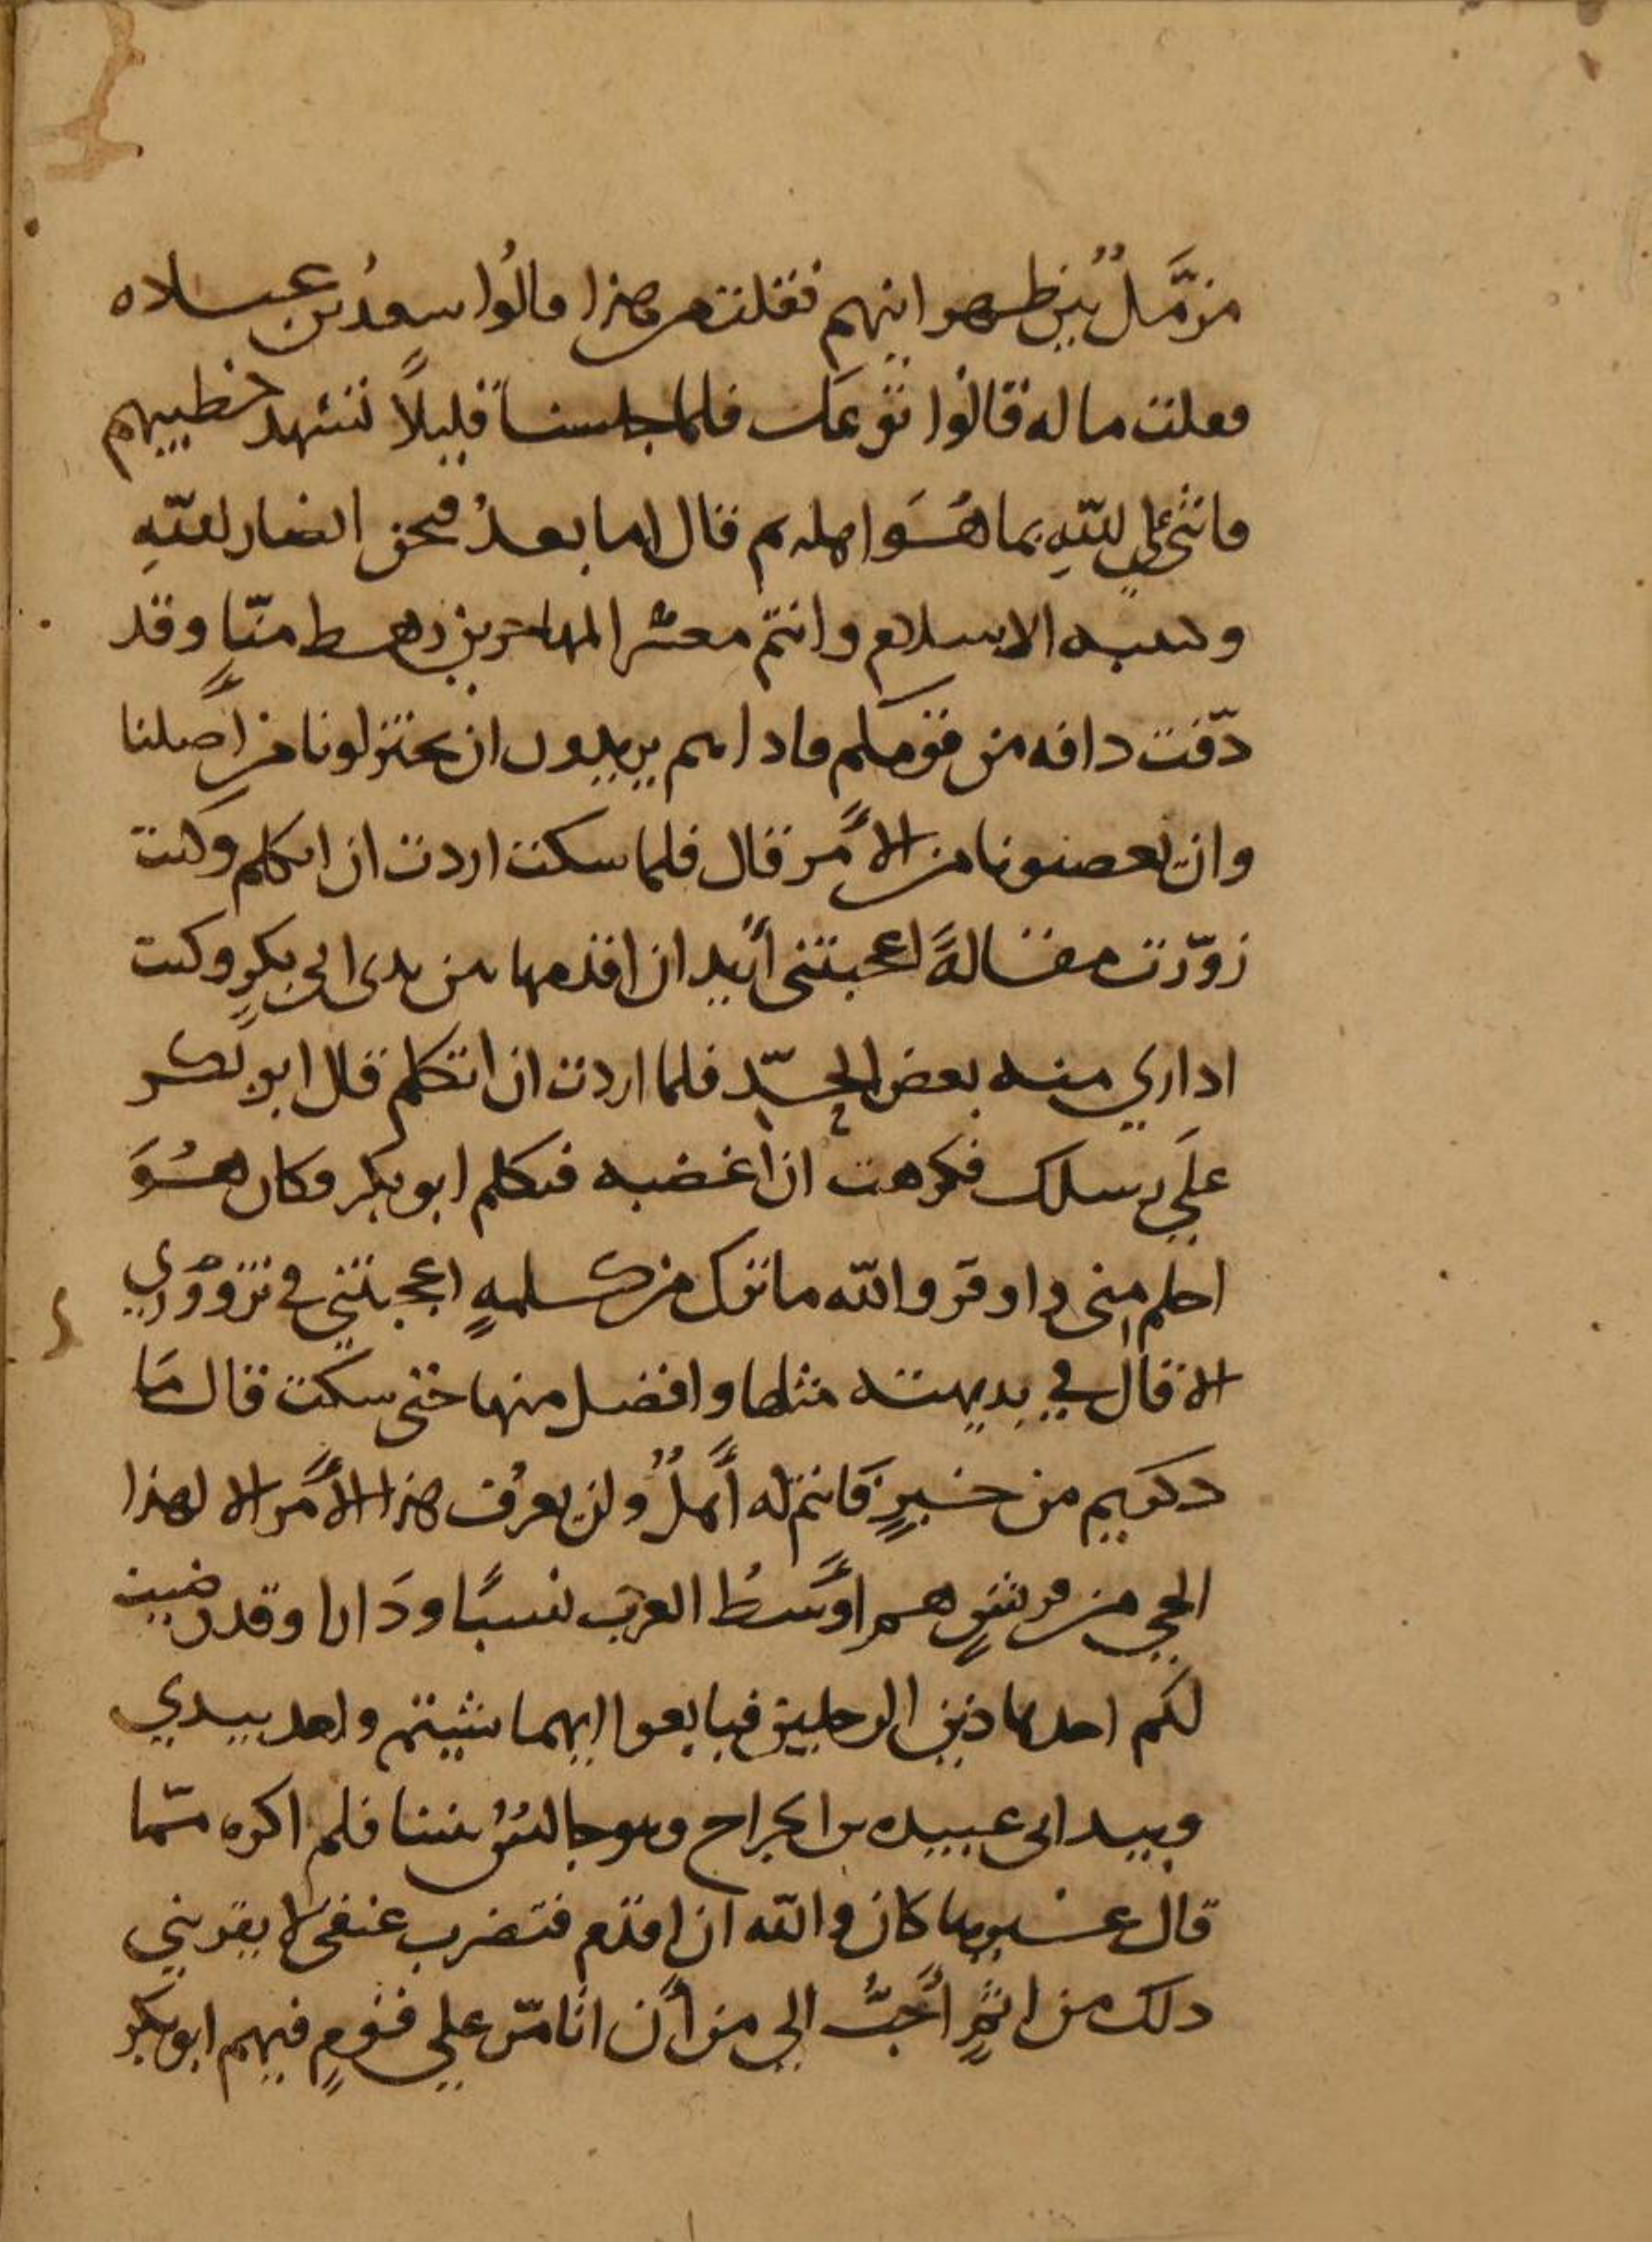 مزمَّلٌ بين ظهرانيهم فقلت من هذا قالُوا سعدُ بن عباده
فقلت ما له قالوا توعك فلما جلسنا قليلاً تشهد خطيبهم
فاثنى على اللّهِ بما هُوَ اهله ثم قال اما بعدُ فنحن انصار اللّهِ
وكتيبه الاسلام وانتم معشر المهاجرين رهط منّا وقد
دفّت دافه من قومكم فاذا هم يريدون ان يختزلونا من أصلنا
وان يحصنونا من الأمر قال فلما سكت اردت ان اتكلم وكنت
زوّرت مقالةً اعجبتنى أريد ان اقدمها بين يدى ابى بكرٍ وكنت
اداري منه بعض الحدّ فلما اردت ان اتكلم قال ابو بكر
علَى رسلك فكرهت ان اغضبه فتكلم ابو بكر فكان هُوَ
احلم منى واوقر واللّه ما ترك من كلمهٍ اعجبتني في تزووري
الا قال في بديهته مثلها وافضل منها حتى سكت قال ما
ذكرتم من خيرٍ فَانتم له أَهلٌ ولن يعرُف هذا الأَمر الا لهذا
الحي من قريشٍ هم اوسَطُ العرب نسبًا ودَارا وقد رضيت
لكم احد هاذين الرجلين فبايعوا ايهما شيتم واخذ بيدي
وبيد ابى عبيده بن الجراح وهو جالسٌ بيننا فلم اكره مّما
قال غيرها كان واللّه ان اقدم فتضرب عنقى لا يقربني
ذلك من اثمٍ أَحبُّ الي من أن اتامّر على قومٍ فيهم ابو بكر